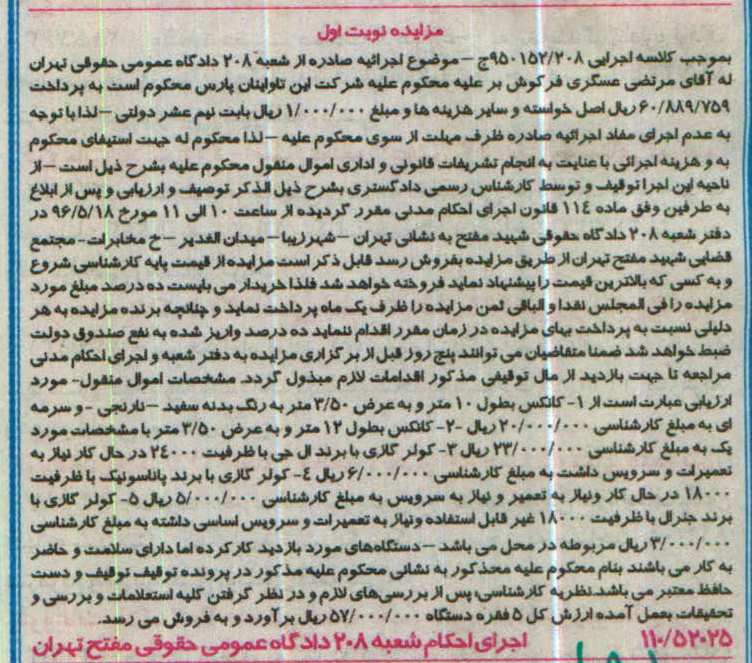 مزایده نوبت اول
بموجب کلاسه اجرایی ۹۵۰۱۵۲/۲۰۸ج – موضوع اجرائیه صادره از شعبه ۲۰۸ دادگاه عمومی حقوقی تهران
له آقای مرتضی عسگری فرکوش بر علیه محکوم علیه شرکت این تاوایتان پارس محکوم است به پرداخت
۶۰/۸۸۹/۷۵۹ ریال اصل خواسته و سایر هزینه ها و مبلغ ۱/۰۰۰/۰۰۰ ریال بابت نیم عشر دولتی – لذا با توجه
به عدم اجرای مفاد اجرائیه صادره ظرف مهلت از سوی محکوم علیه – لذا محکوم له جهت استیفای محکوم
به و هزینه اجرائی با عنایت به انجام تشریفات قانونی و اداری اموال منقول محکوم علیه بشرح ذیل است – از
ناحیه این اجرا توقیف و توسط کارشناس رسمی دادگستری بشرح ذیل الذکر توصیف و ارزیابی و پس از ابلاغ
به طرفین وفق ماده ۱۱٤ قانون اجرای احکام مدنی مقرر گردیده از ساعت ۱۰ الی ۱۱ مورخ ۹۶/۵/۱۸ در
دفتر شعبه ۲۰۸ دادگاه حقوقی شهید مفتح به نشانی تهران – شهرزیبا – میدان الغدیر – خ مخابرات- مجتمع
قضایی شهید مفتح تهران از طریق مزایده بفروش رسد قابل ذکر است مزایده از قیمت پایه کارشناسی شروع
و به کسی که بالاترین قیمت را پیشنهاد نماید فروخته خواهد شد فلذا خریدار می بایست ده درصد مبلغ مورد
مزایده را فی المجلس نقدا و الباقی ثمن مزایده را ظرف یک ماه پرداخت نماید و چنانچه برنده مزایده به هر
دلیلی نسبت به پرداخت بهای مزایده در زمان مقرر اقدام ننماید ده درصد واریز شده به نفع صندوق دولت
ضبط خواهد شد ضمنا متقاضیان می توانند پنج روز قبل از برگزاری مزایده به دفتر شعبه و اجرای احکام مدنی
مراجعه تا جهت بازدید از مال توقیفی مذکور اقدامات لازم مبذول گردد. مشخصات اموال منقول- مورد
ارزیابی عبارت است از ۱- کانکس بطول ۱۰ متر و به عرض ۳/۵۰ متر به رنگ بدنه سفید – نارنجی - و سرمه
ای به مبلغ کارشناسی ۲۰/۰۰۰/۰۰۰ ریال -۲- کانکس بطول ۱۲ متر و به عرض ۳/۵۰ متر با مشخصات مورد
یک به مبلغ کارشناسی ۲۳/۰۰۰/۰۰۰ ریال ۳- کولر گازی با برند ال جی با ظرفیت ۲٤۰۰۰ در حال کار نیاز به
تعمیرات و سرویس داشت به مبلغ کارشناسی ۶/۰۰۰/۰۰۰ ریال ٤- کولر گازی با برند پاناسونیک با ظرفیت
۱۸۰۰۰ در حال کار ونیاز به تعمیر و نیاز به سرویس به مبلغ کارشناسی ۵/۰۰۰/۰۰۰ ریال ۵- کولر گازی با
برند جنرال با ظرفیت ۱۸۰۰۰ غیر قابل استفاده ونیاز به تعمیرات و سرویس اساسی داشته به مبلغ کارشناسی
۳/۰۰۰/۰۰۰ ریال مربوطه در محل می باشد – دستگاههای مورد بازدید کارکرده اما دارای سلامت و حاضر
به کار می باشند بنام محکوم علیه محذکور به نشانی محکوم علیه مذکور در پرونده توقیف توقیف و دست
حافظ معتبر می باشد.نظریه کارشناسی: پس از بررسی های لازم و در نظر گرفتن کلیه استعلامات و بررسی و
تحقیقات بعمل آمده ارزش کل ۵ فقره دستگاه ۵۷/۰۰۰/۰۰۰ ریال برآورد و به فروش می رسد.
۱۱۰/۵۲۰۲۵ اجرای احکام شعبه ۲۰۸ دادگاه عمومی حقوقی مفتح تهران